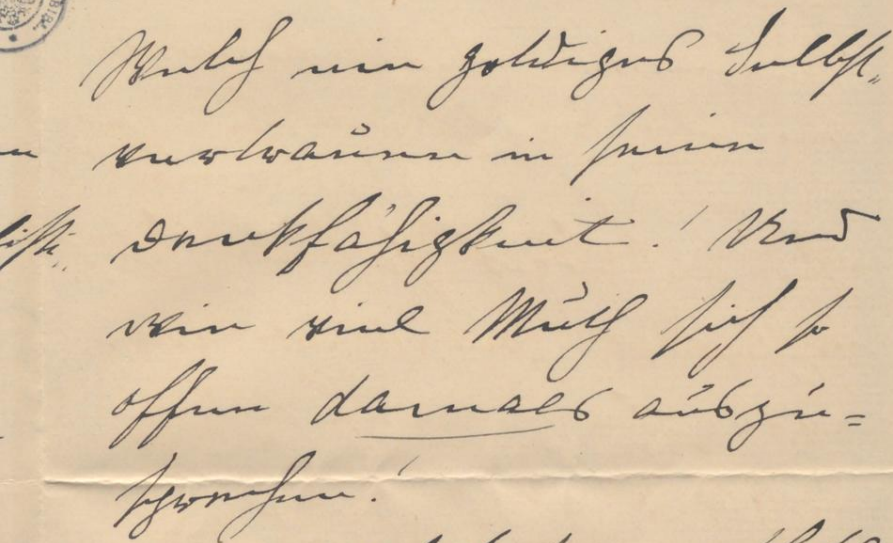 Welch ein goldiges Selbst-
vertrauen in seine
Denkfähigkeit! Und
wie viel Muth sich so
offen damals auszu=
sprechen!